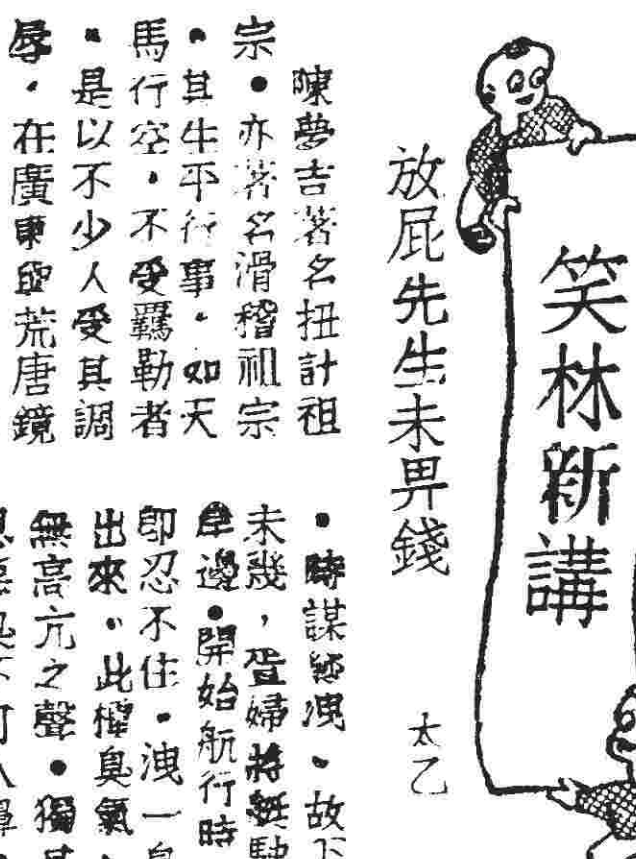 笑林新講
放屁先生未畀錢
太乙
陳夢吉著名扭計祖
宗•亦著名滑稽祖宗
•其生平行事•如天
馬行空•不受羈勒者
•是以不少人受其調
辱•在廣東與荒唐鏡
•時謀經洩•故下
未幾,疍婦將艇駛
岸邊•開始航行時
即忍不住•洩一
出來•此種臭氣•
無高亢之聲•獨